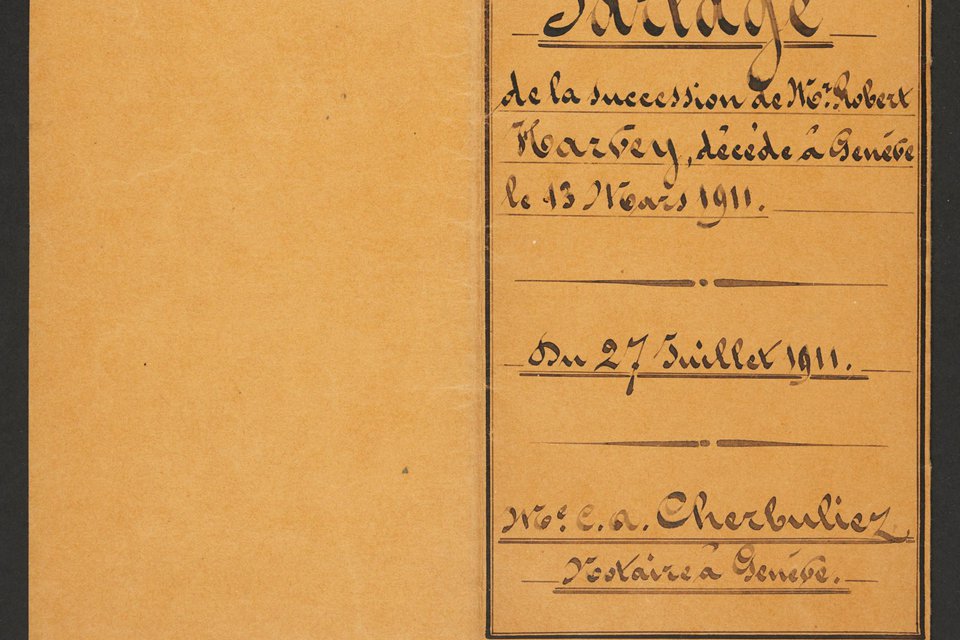 Partage
de la succession de Mr. Robert
Harvey, décédé à Genève
le 13 Mars 1911.
Du 27 Juillet 1911.
Me. C. A. Cherbuliez
Notaire à Genève.